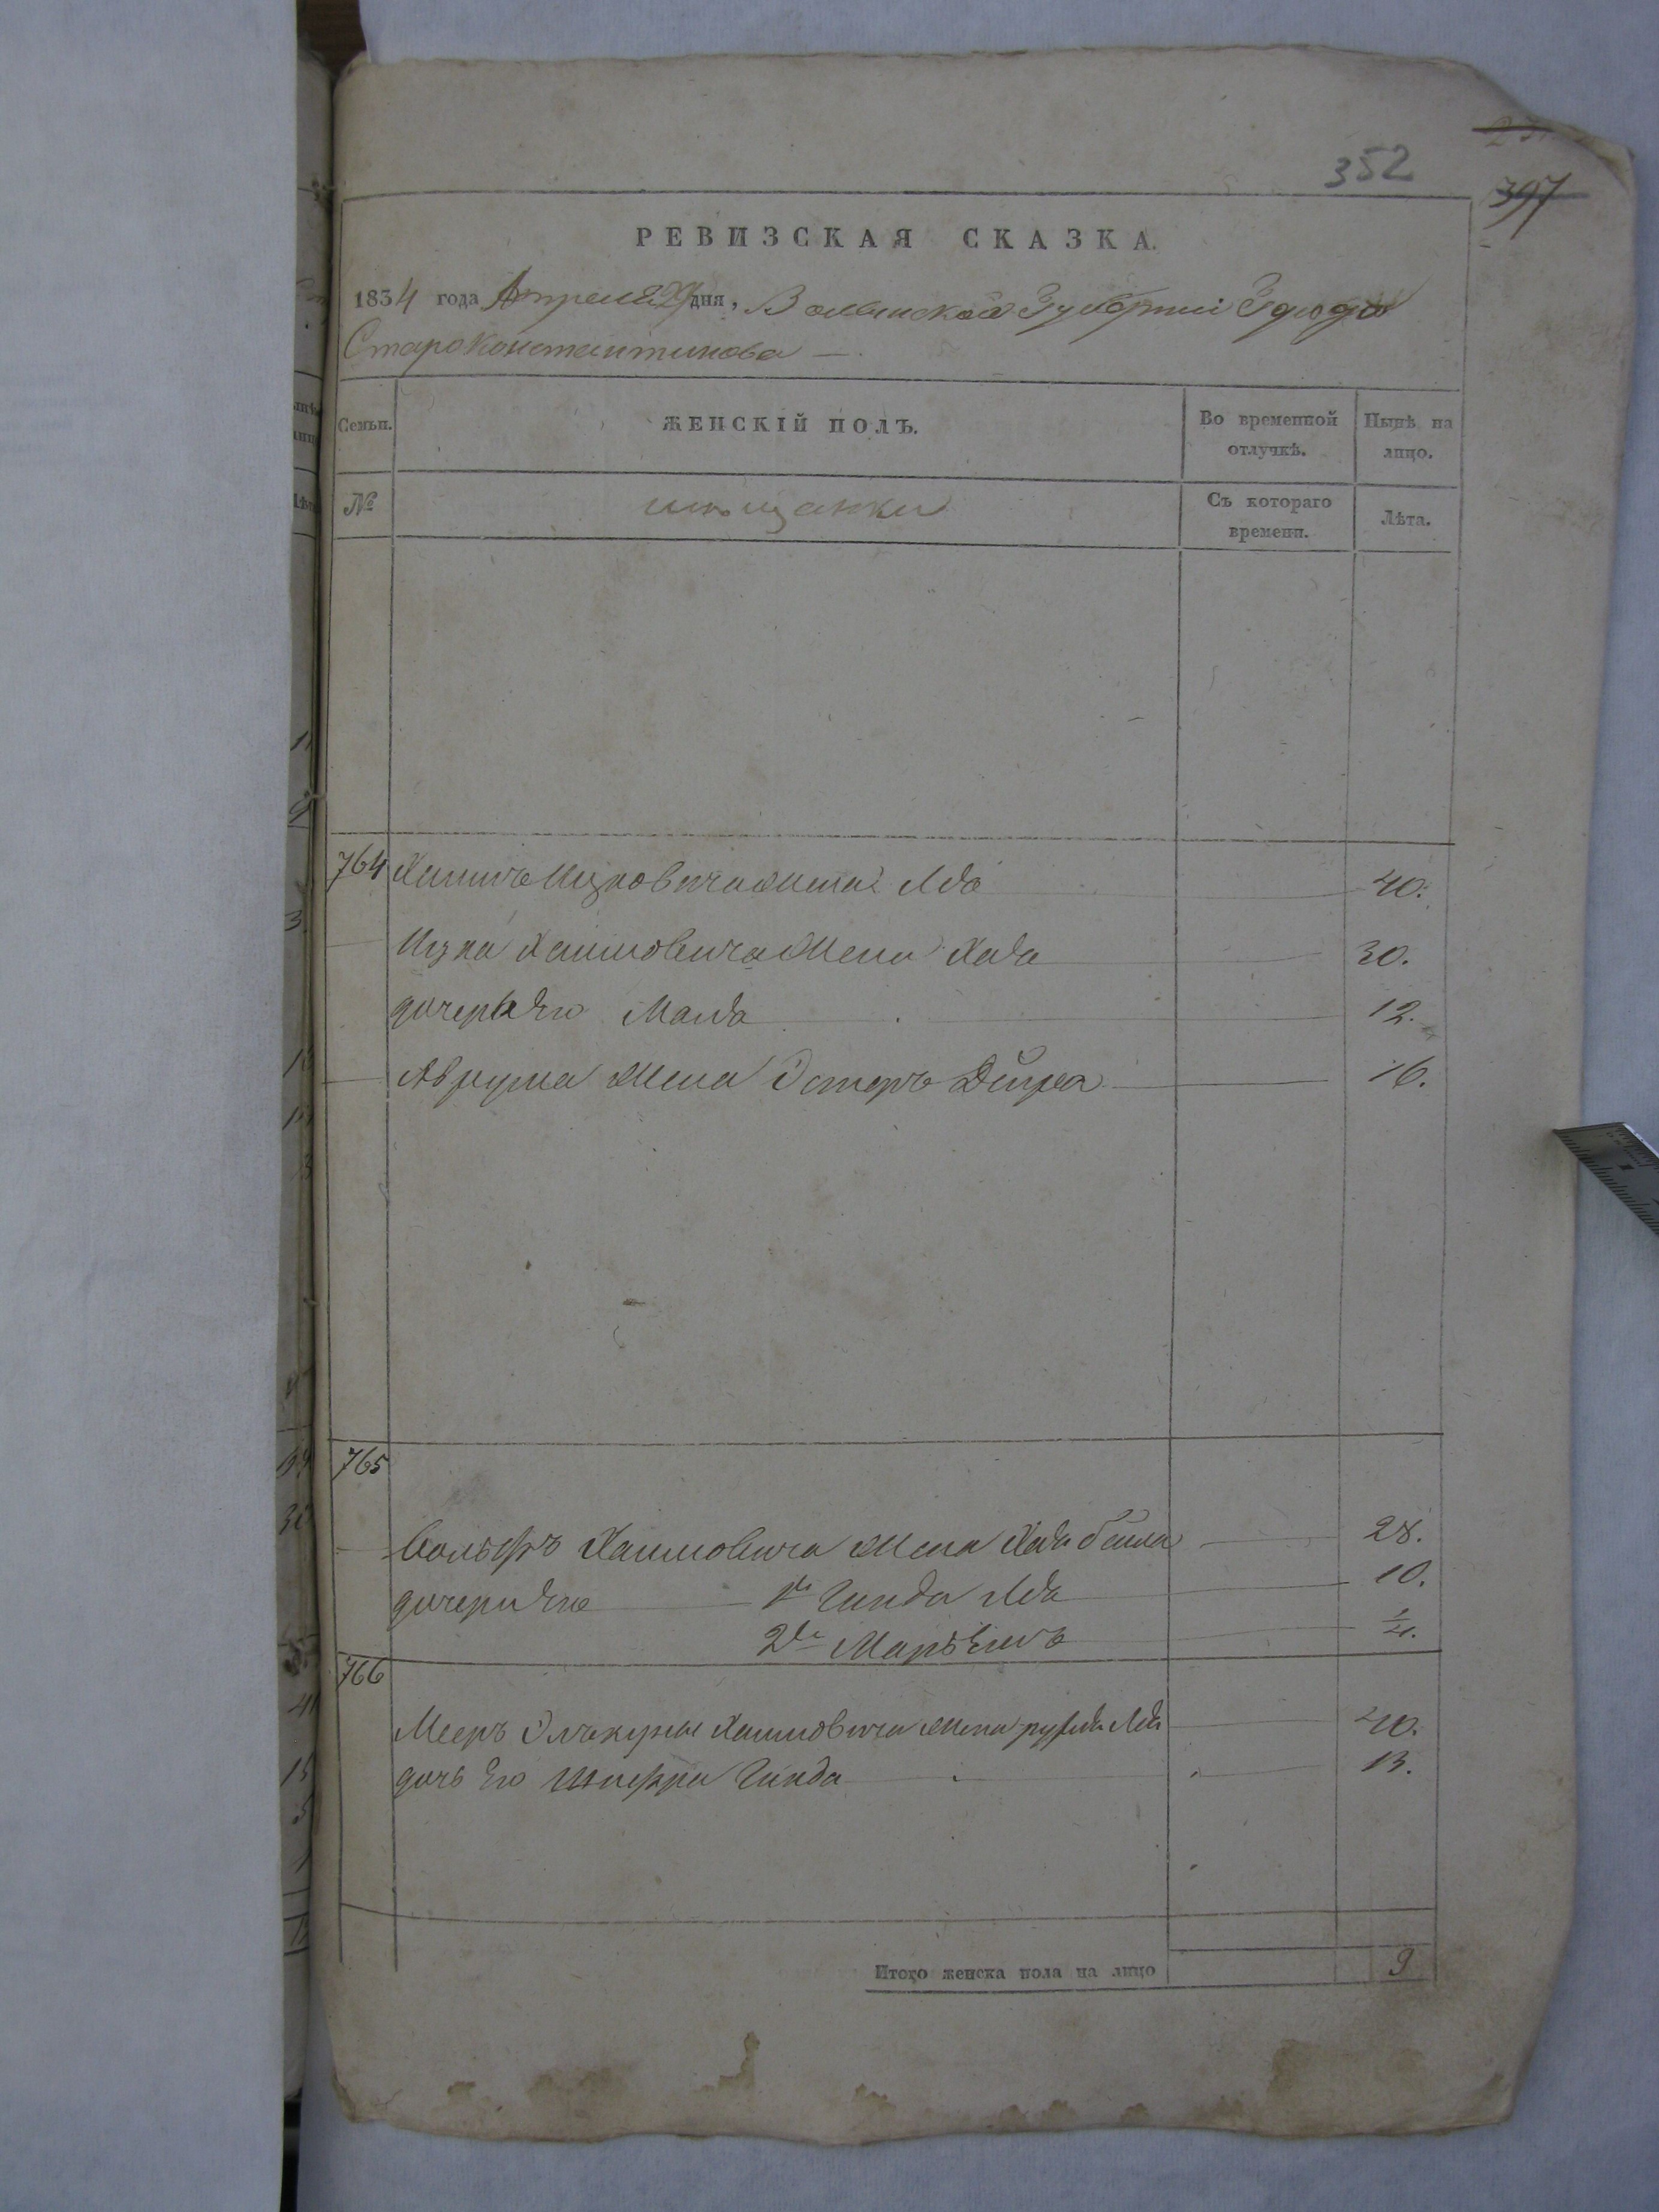 352
397
РЕВИЗСКАЯ СКАЗКА.
1834 года Апреля 29 дня, Волынской Губернии Города
Староконстантинова
Семьи. ЖЕНСКІЙ ПОЛЪ. Во временной отлучкѣ. Нынѣ на лицо.
№ мѣщанки Съ котораго времени. Лѣта.
764 Хаимъ Ицковича жена Леа 40.
Ицка Хаимовича жена Хава 30.
дочерь его 12.
Аврума жена Эстеръ Двира 16.
765
Вольфъ Хаимовича жена Хава Бейла 28.
дочери его 1я Гинда Леа 10.
2я Марьемъ
766
Мееръ Хаимовича жена Леа 40.
дочь его Шифра Гинда 13.
Итого женска пола на лицо 9